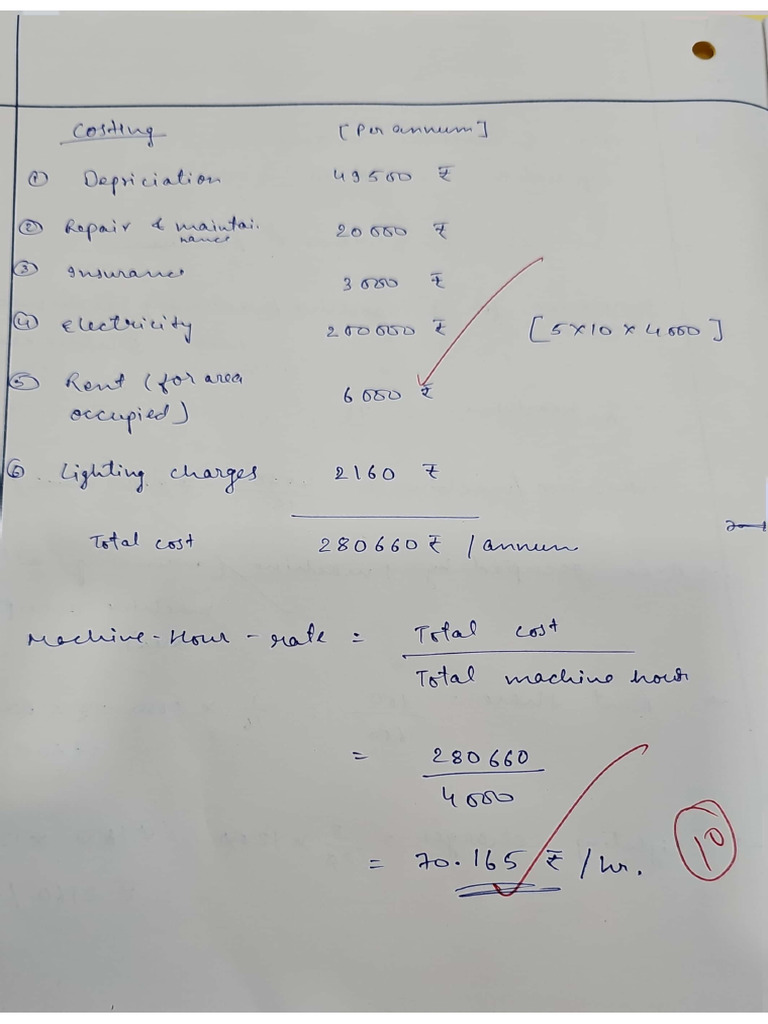 Costing [Per annum]
① Depriciation 49500 ₹
② Repair & maintai.
nance 20000 ₹
③ Insurance 3000 ₹
④ Electricity 200000 ₹ [5×10×4000]
⑤ Rent (for area
occupied) 6000 ₹
⑥ Lighting charges 2160 ₹
Total cost 280660 ₹ / annum
Machine-Hour-rate = Total cost
Total machine hour
= 280660
4000
= 70.165 ₹ / hr.
10